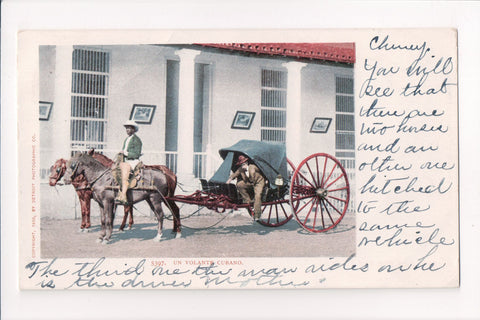 Chuney.
You will
see that
there are
two horses
and an
other one
hitched
to the
same
vehicle
COPYRIGHT, 1900, BY DETROIT PHOTOGRAPHIC CO.
5397. UN VOLANTE CUBANO.
The third one the man rides on he
is the driver Mother